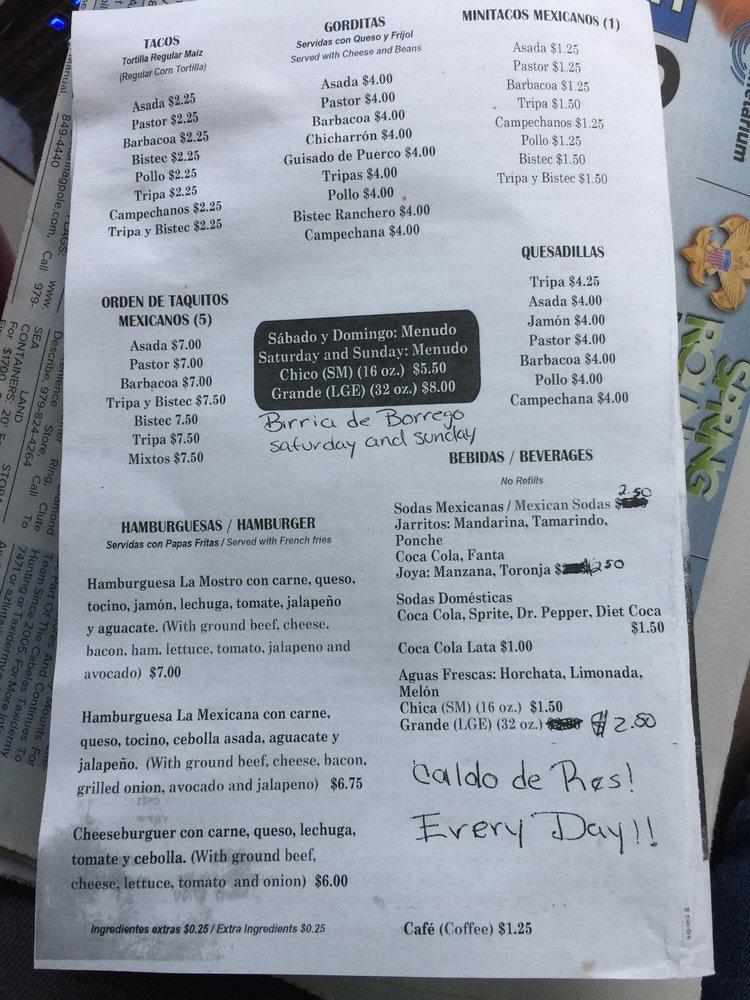 TACOS
Tortilla Regular Maíz
(Regular Corn Tortilla)
Asada $2.25
Pastor $2.25
Barbacoa $2.25
Bistec $2.25
Pollo $2.25
Tripa $2.25
Campechanos $2.25
Tripa y Bistec $2.25
GORDITAS
Servidas con Queso y Frijol
Served with Cheese and Beans
Asada $4.00
Pastor $4.00
Barbacoa $4.00
Chicharrón $4.00
Guisado de Puerco $4.00
Tripas $4.00
Pollo $4.00
Bistec Ranchero $4.00
Campechana $4.00
MINITACOS MEXICANOS (1)
Asada $1.25
Pastor $1.25
Barbacoa $1.25
Tripa $1.50
Campechanos $1.25
Pollo $1.25
Bistec $1.50
Tripa y Bistec $1.50
QUESADILLAS
Tripa $4.25
Asada $4.00
Jamón $4.00
Pastor $4.00
Barbacoa $4.00
Pollo $4.00
Campechana $4.00
ORDEN DE TAQUITOS
MEXICANOS (5)
Asada $7.00
Pastor $7.00
Barbacoa $7.00
Tripa y Bistec $7.50
Bistec 7.50
Tripa $7.50
Mixtos $7.50
Sábado y Domingo: Menudo
Saturday and Sunday: Menudo
Chico (SM) (16 oz.) $5.50
Grande (LGE) (32 oz.) $8.00
Birria de Borrego
saturday and sunday
HAMBURGUESAS / HAMBURGER
Servidas con Papas Fritas / Served with French fries
Hamburguesa La Mostro con carne, queso,
tocino, jamón, lechuga, tomate, jalapeño
y aguacate. (With ground beef, cheese,
bacon, ham, lettuce, tomato, jalapeno and
avocado) $7.00
Hamburguesa La Mexicana con carne,
queso, tocino, cebolla asada, aguacate y
jalapeño. (With ground beef, cheese, bacon,
grilled onion, avocado and jalapeno) $6.75
Cheeseburguer con carne, queso, lechuga,
tomate y cebolla. (With ground beef,
cheese, lettuce, tomato and onion) $6.00
Ingredientes extras $0.25 / Extra Ingredients $0.25
BEBIDAS / BEVERAGES
No Refills
Sodas Mexicanas / Mexican Sodas $ 2.50
Jarritos: Mandarina, Tamarindo,
Ponche
Coca Cola, Fanta
Joya: Manzana, Toronja $ 2.50
Sodas Domésticas
Coca Cola, Sprite, Dr. Pepper, Diet Coca
$1.50
Coca Cola Lata $1.00
Aguas Frescas: Horchata, Limonada,
Melón
Chica (SM) (16 oz.) $1.50
Grande (LGE) (32 oz.) $ 2.50
Caldo de Res!
Every Day!!
Café (Coffee) $1.25
849-4440
Call 979-
www.
SEA LAND
CONTAINERS
979-824-4264
SPRING